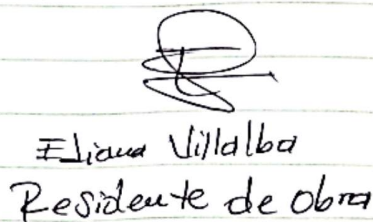 Eliana Villalba
Residente de Obra